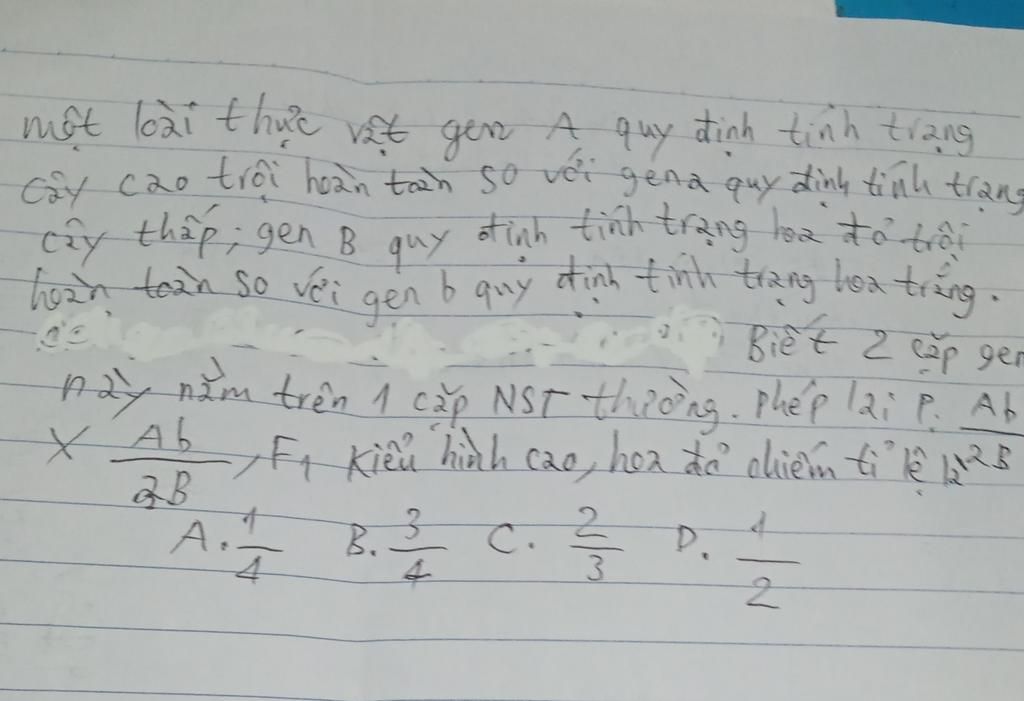 một loài thực vật gen A quy định tính trạng
cây cao trội hoàn toàn so với gen a quy định tính trạng
cây thấp; gen B quy định tính trạng hoa đỏ trội
hoàn toàn so với gen b quy định tính trạng hoa trắng.
Biết 2 cặp gen
này nằm trên 1 cặp NST thường. Phép lai P. Ab/aB
X Ab/aB, F1 kiểu hình cao, hoa đỏ chiếm tỉ lệ là
A. 1/4 B. 3/4 C. 2/3 D. 1/2